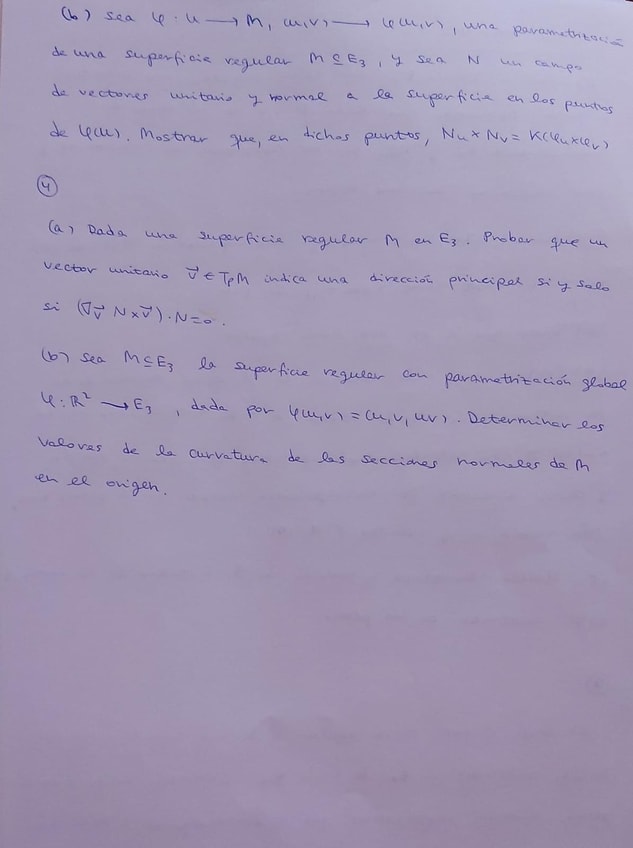 (b) sea φ : U → M, (u,v) → φ(u,v), una parametrización
de una superficie regular M ⊆ E₃, y sea N un campo
de vectores unitario y normal a la superficie en los puntos
de φ(U). Mostrar que, en dichos puntos, Nu × Nv = K(φu×φv)
④
(a) Dada una superficie regular M en E₃. Probar que un
vector unitario v⃗ ∈ TpM indica una dirección principal si y solo
si (∇v⃗ N × v⃗) · N = 0.
(b) sea M ⊆ E₃ la superficie regular con parametrización global
φ : ℝ² → E₃, dada por φ(u,v) = (u, v, uv). Determinar los
valores de la curvatura de las secciones normales de M
en el origen.